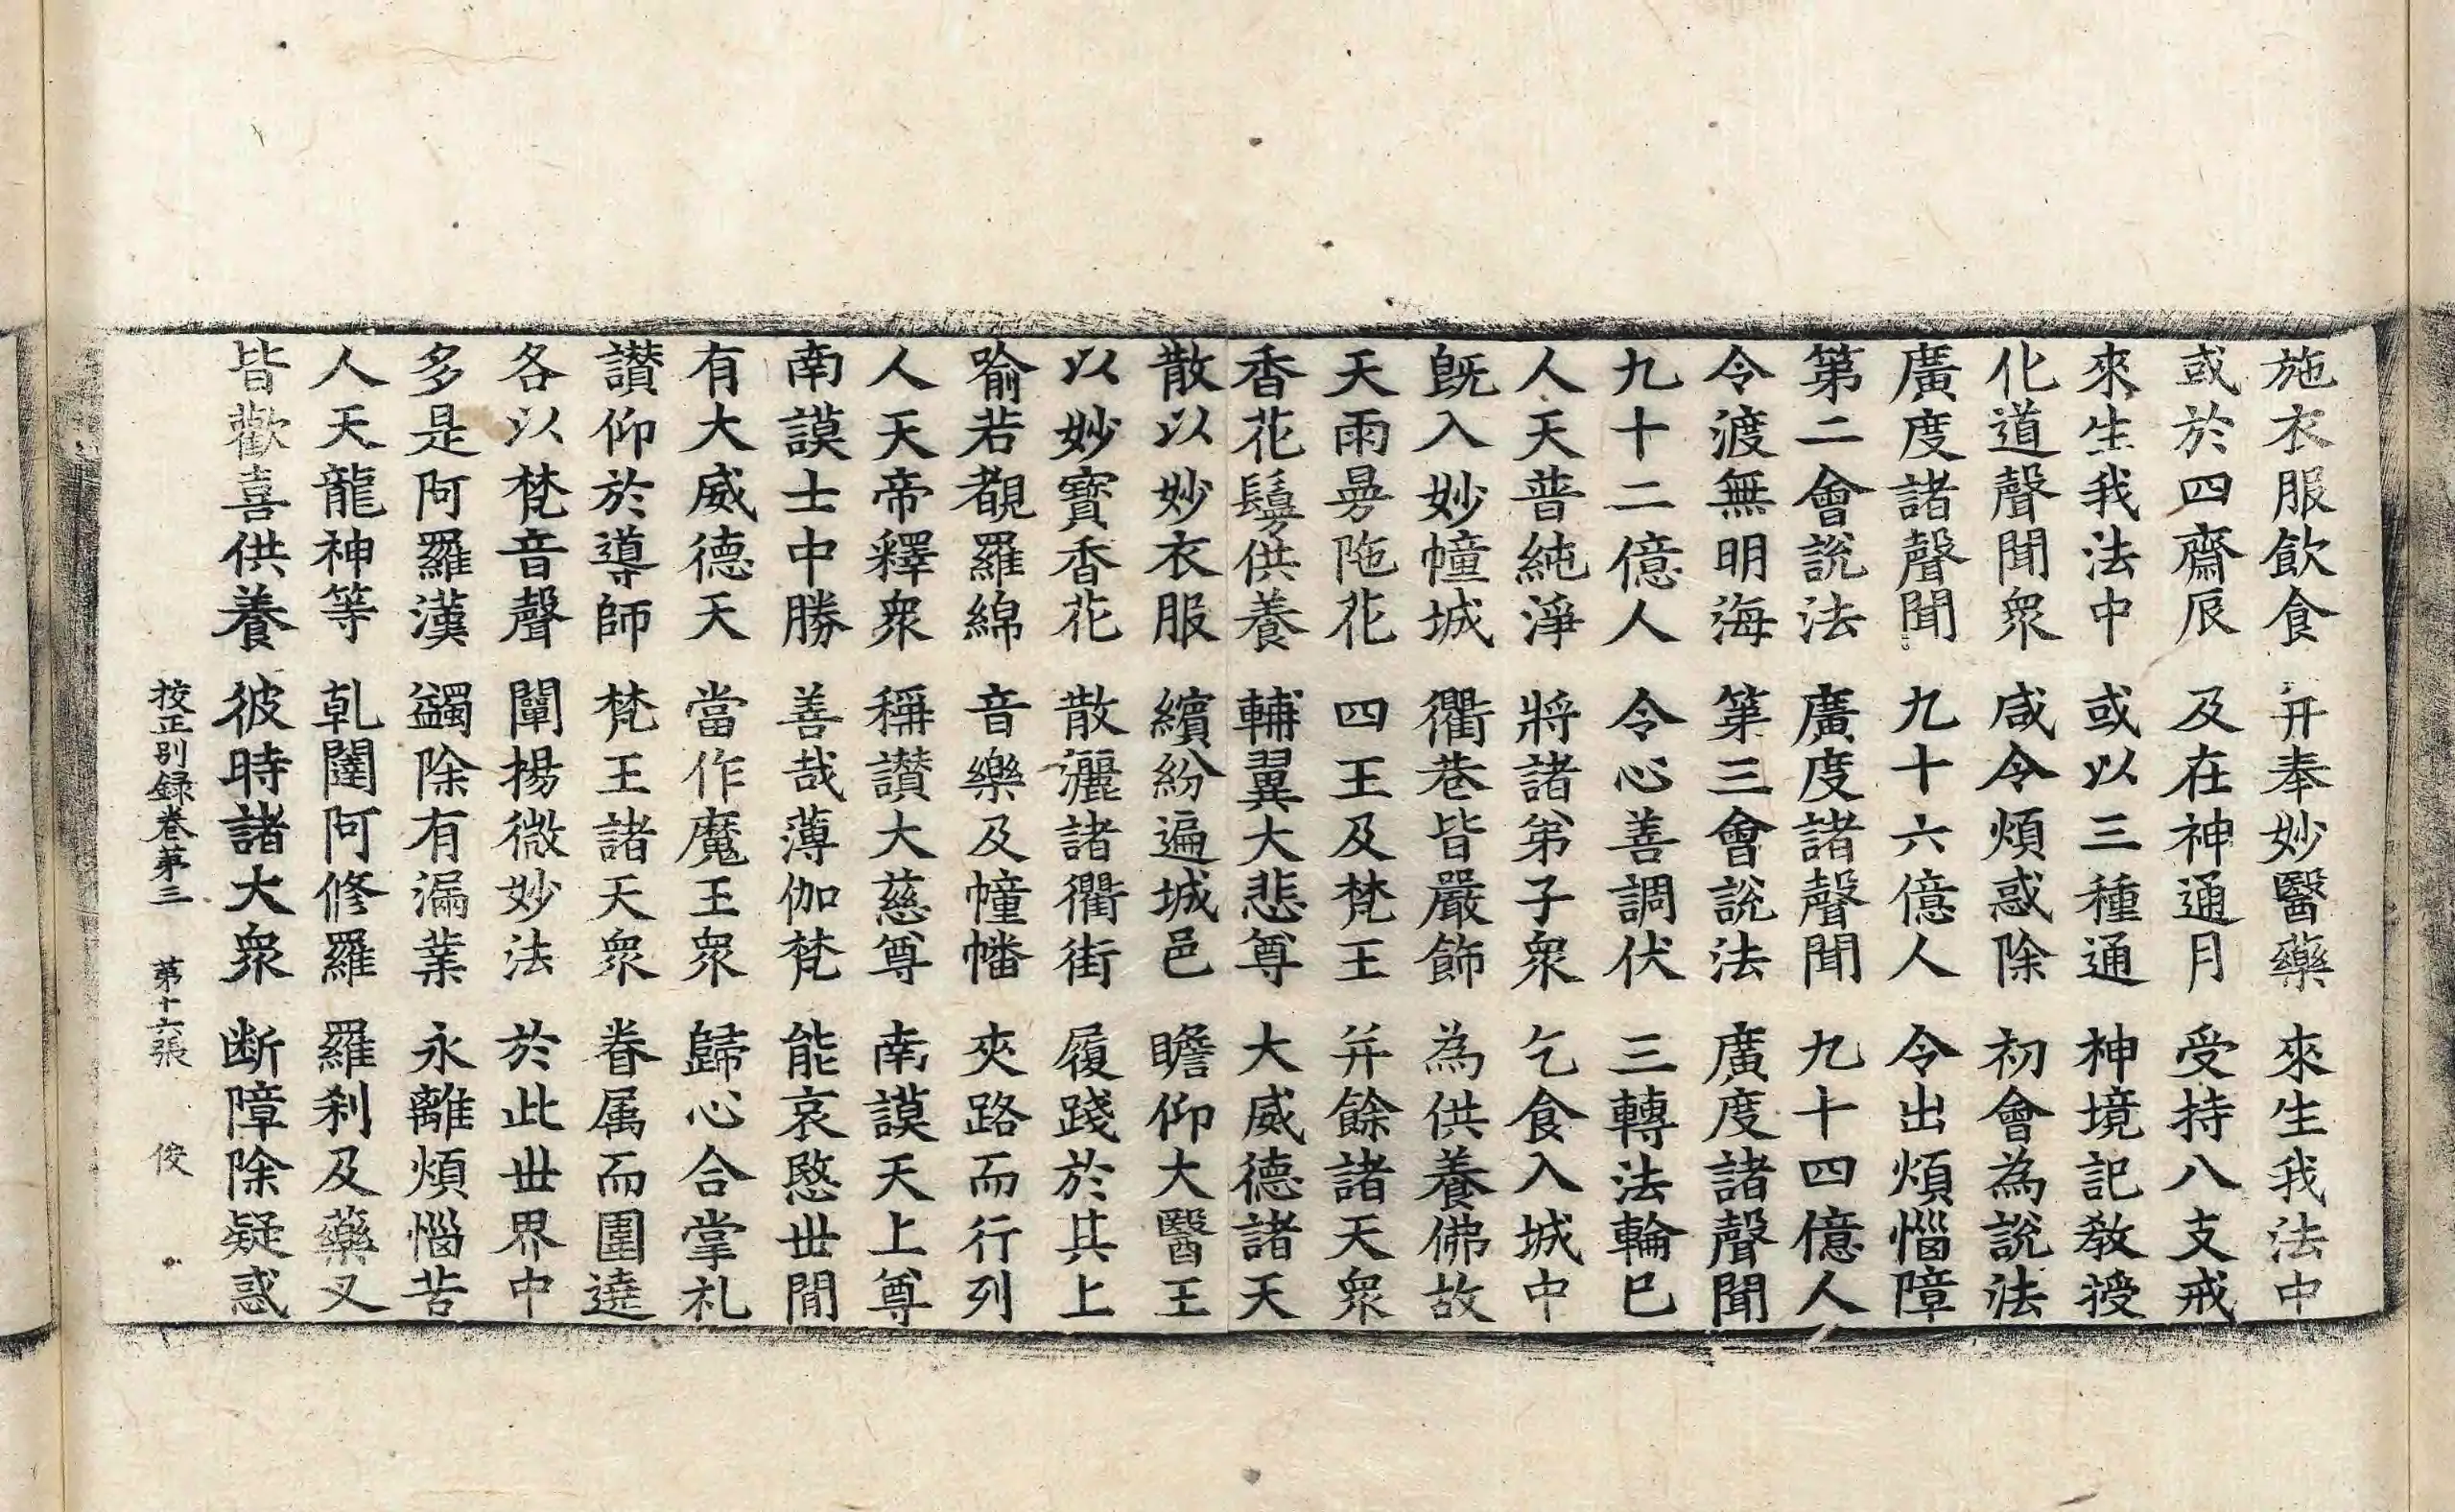 施衣服飲食 并奉妙醫藥 來生我法中
或於四齋辰 及在神通月 受持八支戒
來生我法中 或以三種通 神境記教授
化道聲聞眾 咸令煩惑除 初會為說法
廣度諸聲聞 九十六億人 令出煩惱障
第二會說法 廣度諸聲聞 九十四億人
令渡無明海 第三會說法 廣度諸聲聞
九十二億人 令心善調伏 三轉法輪已
人天普純淨 將諸弟子眾 乞食入城中
旣入妙幢城 衢巷皆嚴飾 為供養佛故
天雨曼陁花 四王及梵王 并餘諸天眾
香花鬘供養 輔翼大悲尊 大威德諸天
散以妙衣服 繽紛遍城邑 瞻仰大醫王
以妙寶香花 散灑諸衢街 履踐於其上
喻若覩羅綿 音樂及幢幡 夾路而行列
人天帝釋眾 稱讃大慈尊 南謨天上尊
南謨士中勝 善哉薄伽梵 能哀愍世閒
有大威德天 當作魔王眾 歸心合掌礼
讃仰於導師 梵王諸天眾 眷属而圍遶
各以梵音聲 闡揚微妙法 於此世界中
多是阿羅漢 蠲除有漏業 永離煩惱苦
人天龍神等 乹闥阿修羅 羅刹及藥叉
皆歡喜供養 彼時諸大眾 断障除疑惑
校正別録卷第三 第十六張 俊